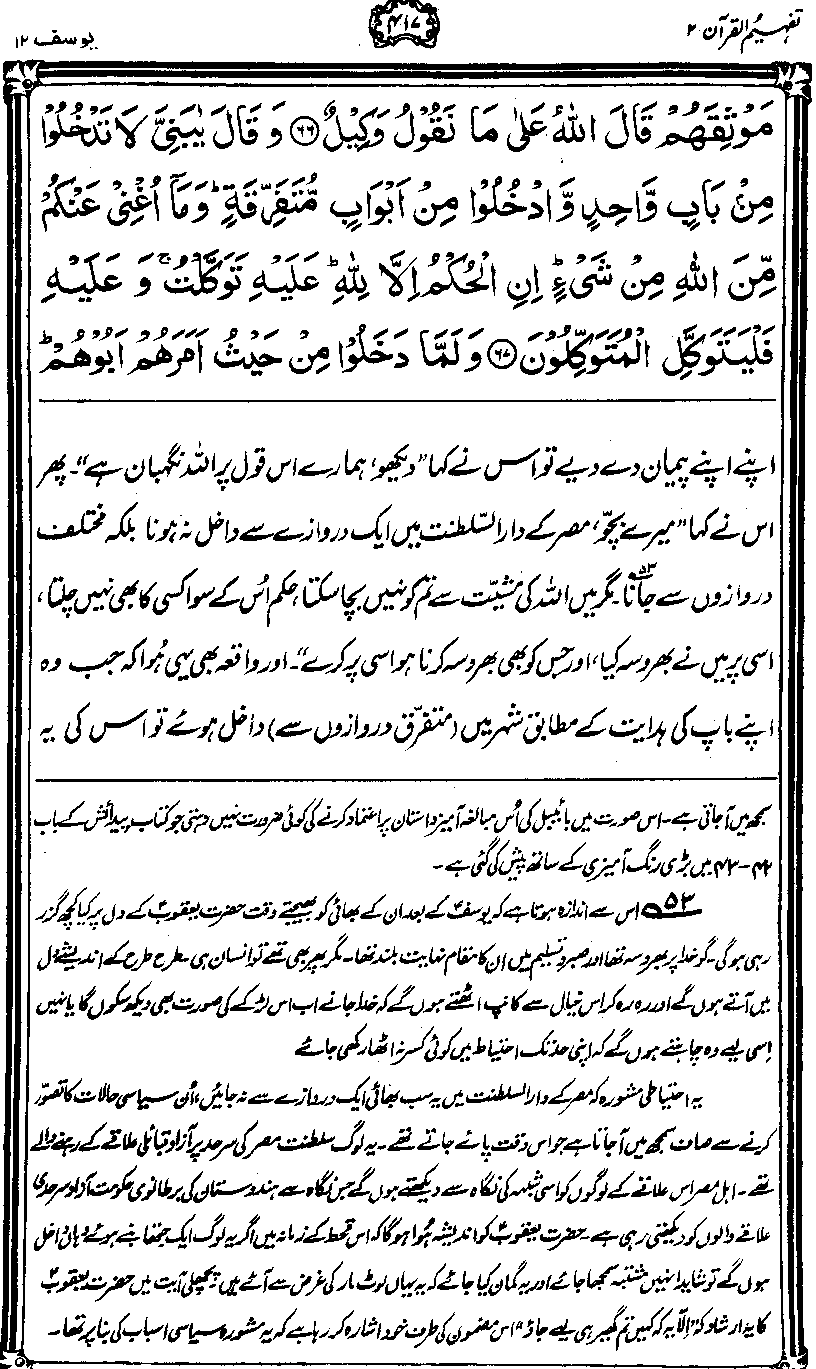 تفہیم القرآن ۲
۴۱۷
یوسف ۱۲
مَوْثِقَهُمْ قَالَ اللّٰهُ عَلٰى مَا نَقُوْلُ وَكِيْلٌ ﴿۶۶﴾ وَ قَالَ يٰبَنِيَّ لَا تَدْخُلُوْا
مِنْۢ بَابٍ وَّاحِدٍ وَّ ادْخُلُوْا مِنْ اَبْوَابٍ مُّتَفَرِّقَةٍ ؕ وَ مَاۤ اُغْنِيْ عَنْكُمْ
مِّنَ اللّٰهِ مِنْ شَيْءٍ ؕ اِنِ الْحُكْمُ اِلَّا لِلّٰهِ ؕ عَلَيْهِ تَوَكَّلْتُ ۚ وَ عَلَيْهِ
فَلْيَتَوَكَّلِ الْمُتَوَكِّلُوْنَ ﴿۶۷﴾ وَ لَمَّا دَخَلُوْا مِنْ حَيْثُ اَمَرَهُمْ اَبُوْهُمْ ؕ
اپنے اپنے پیمان دے دیے تو اس نے کہا ”دیکھو، ہمارے اس قول پر اللہ نگہبان ہے“۔ پھر
اس نے کہا ”میرے بچّو، مصر کے دارالسّلطنت میں ایک دروازے سے داخل نہ ہونا بلکہ مختلف
دروازوں سے جانا۵۳۔ مگر میں اللہ کی مشیّت سے تم کو نہیں بچا سکتا، حکم اُس کے سوا کسی کا بھی نہیں چلتا،
اسی پر میں نے بھروسہ کیا، اور جس کو بھی بھروسہ کرنا ہو اسی پر کرے“۔ اور واقعہ بھی یہی ہُوا کہ جب وہ
اپنے باپ کی ہدایت کے مطابق شہر میں (متفرّق دروازوں سے) داخل ہوئے تو اس کی یہ
سمجھ میں آجاتی ہے۔ اس صورت میں بائیبل کی اُس مبالغہ آمیز داستان پر اعتماد کرنے کی کوئی ضرورت نہیں رہتی جو کتاب پیدائش کے باب
۴۲-۴۳ میں بڑی رنگ آمیزی کے ساتھ پیش کی گئی ہے۔
۵۳ اس سے اندازہ ہوتا ہے کہ یوسفؑ کے بعد ان کے بھائی کو بھیجتے وقت حضرت یعقوبؑ کے دل پر کیا کچھ گزر
رہی ہوگی۔ گو خدا پر بھروسہ تھا اور صبر و تسلیم میں ان کا مقام نہایت بلند تھا۔ مگر پھر بھی تھے تو انسان ہی۔ طرح طرح کے اندیشے دل
میں آتے ہوں گے اور رہ رہ کر اس خیال سے کانپ اٹھتے ہوں گے کہ خدا جانے اب اس لڑکے کی صورت بھی دیکھ سکوں گا یا نہیں
اِسی لیے وہ چاہتے ہوں گے کہ اپنی حد تک احتیاط میں کوئی کسر نہ اٹھا رکھی جائے
یہ احتیاطی مشورہ کہ مصر کے دارالسلطنت میں یہ سب بھائی ایک دروازے سے نہ جائیں، اُن سیاسی حالات کا تصوّر
کرنے سے صاف سمجھ میں آجاتا ہے جو اس وقت پائے جاتے تھے۔ یہ لوگ سلطنت مصر کی سرحد پر آزاد قبائلی علاقے کے رہنے والے
تھے۔ اہل مصر اس علاقے کے لوگوں کو اسی شبہ کی نگاہ سے دیکھتے ہوں گے جس نگاہ سے ہندوستان کی برطانوی حکومت آزاد سرحدی
علاقے والوں کو دیکھتی رہی ہے۔ حضرت یعقوبؑ کو اندیشہ ہُوا ہوگا کہ اس قحط کے زمانہ میں اگر یہ لوگ ایک جتھا بنے ہوئے وہاں داخل
ہوں گے تو شاید انہیں مشتبہ سمجھا جائے اور یہ گمان کیا جائے کہ یہ یہاں لوٹ مار کی غرض سے آئے ہیں۔ پچھلی آیت میں حضرت یعقوبؑ
کا یہ ارشاد کہ ”اِلّا یہ کہ کہیں تم گھیر ہی لیے جاؤ“ اس مضمون کی طرف خود اشارہ کر رہا ہے کہ یہ مشورہ سیاسی اسباب کی بنا پر تھا۔